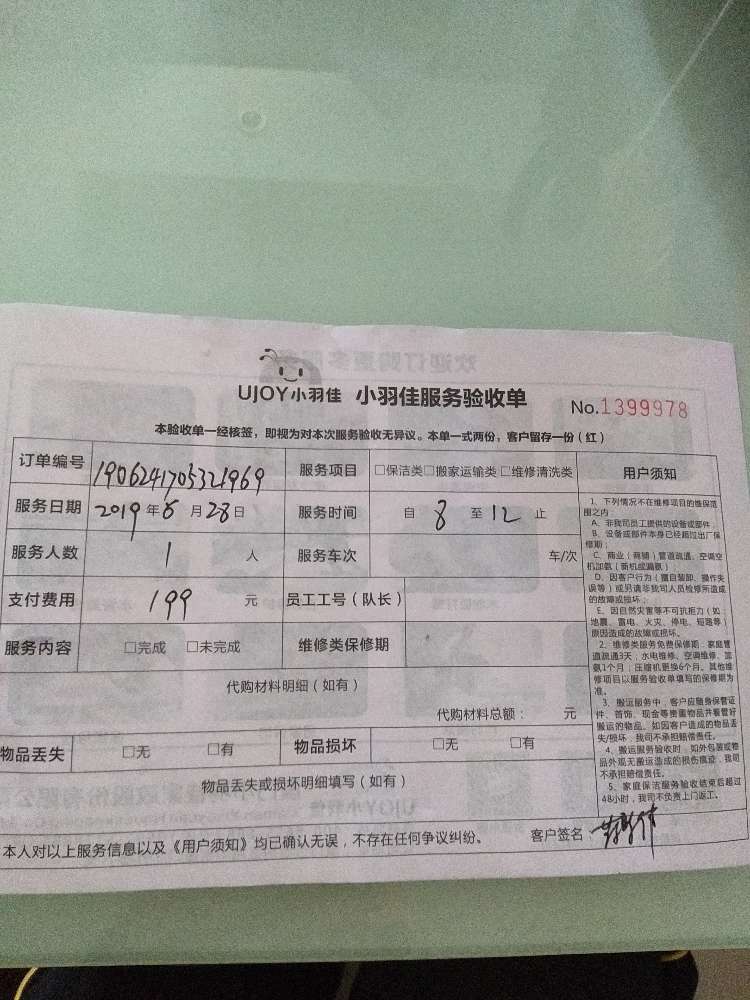 UJOY小羽佳 小羽佳服务验收单 No.1399978
本验收单一经核签，即视为对本次服务验收无异议。本单一式两份，客户留存一份（红）
订单编号 1906241705321969 服务项目 □保洁类□搬家运输类□维修清洗类
服务日期 2019年6月28日 服务时间 自8至12止
服务人数 1人 服务车次 车/次
支付费用 199元 员工工号（队长）
服务内容 □完成 □未完成 维修类保修期
代购材料明细（如有）
代购材料总额： 元
物品丢失 □无 □有 物品损坏 □无 □有
物品丢失或损坏明细填写（如有）
本人对以上服务信息以及《用户须知》均已确认无误，不存在任何争议纠纷。 客户签名：
用户须知
1、下列情况不在维修项目的维保范
围之内：
A、非我司员工提供的设备或部件；
B、设备或部件本身已经超过出厂保
修期；
C、商业（商铺）管道疏通、空调空
机加氨（新机或漏氨）
D、因客户行为（擅自装卸、操作失
误等）或另请非我司人员检修所造成
的故障或损坏；
E、因自然灾害等不可抗拒力（如
地震、雷电、火灾、停电、短路等）
原因造成的故障或损坏。
2、维修类服务免费保修期：家庭管
道疏通3天，水电维修、空调维修、加
氨1个月；压缩机更换6个月。其他维
修项目以服务验收单填写的保修期为
准。
3、搬运服务中，客户应随身保管证
件、首饰、现金等贵重物品并看管好
搬运的物品。如因客户造成的物品丢
失/损坏，我司不承担赔偿责任。
4、搬运服务验收时，如外包装或物
品外观无搬运造成的损伤痕迹，我司
不承担赔偿责任。
5、家庭保洁服务验收结束后超过
48小时，我司不负责上门返工。